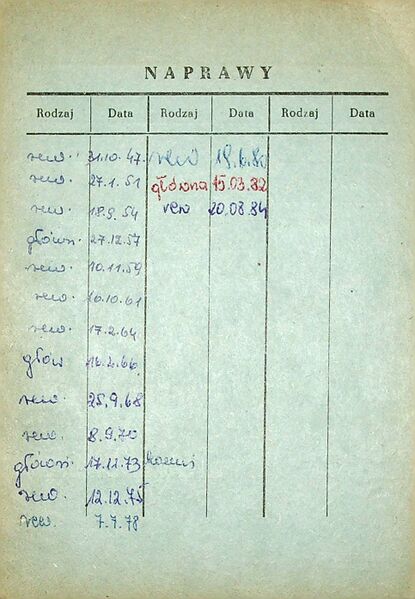 NAPRAWY
Rodzaj Data Rodzaj Data Rodzaj Data
rew. 31.10.47. rew 19.6.80
rew. 27.1.51 główna 15.03.82
rew. 18.9.54 rew 20.08.84
główn. 27.12.57
rew. 10.11.59
rew. 16.10.61
rew. 17.2.64
głów 16.2.66.
rew. 25.9.68
rew. 8.9.70
główn. 17.12.73
rew. 12.12.75
rew. 7.7.78